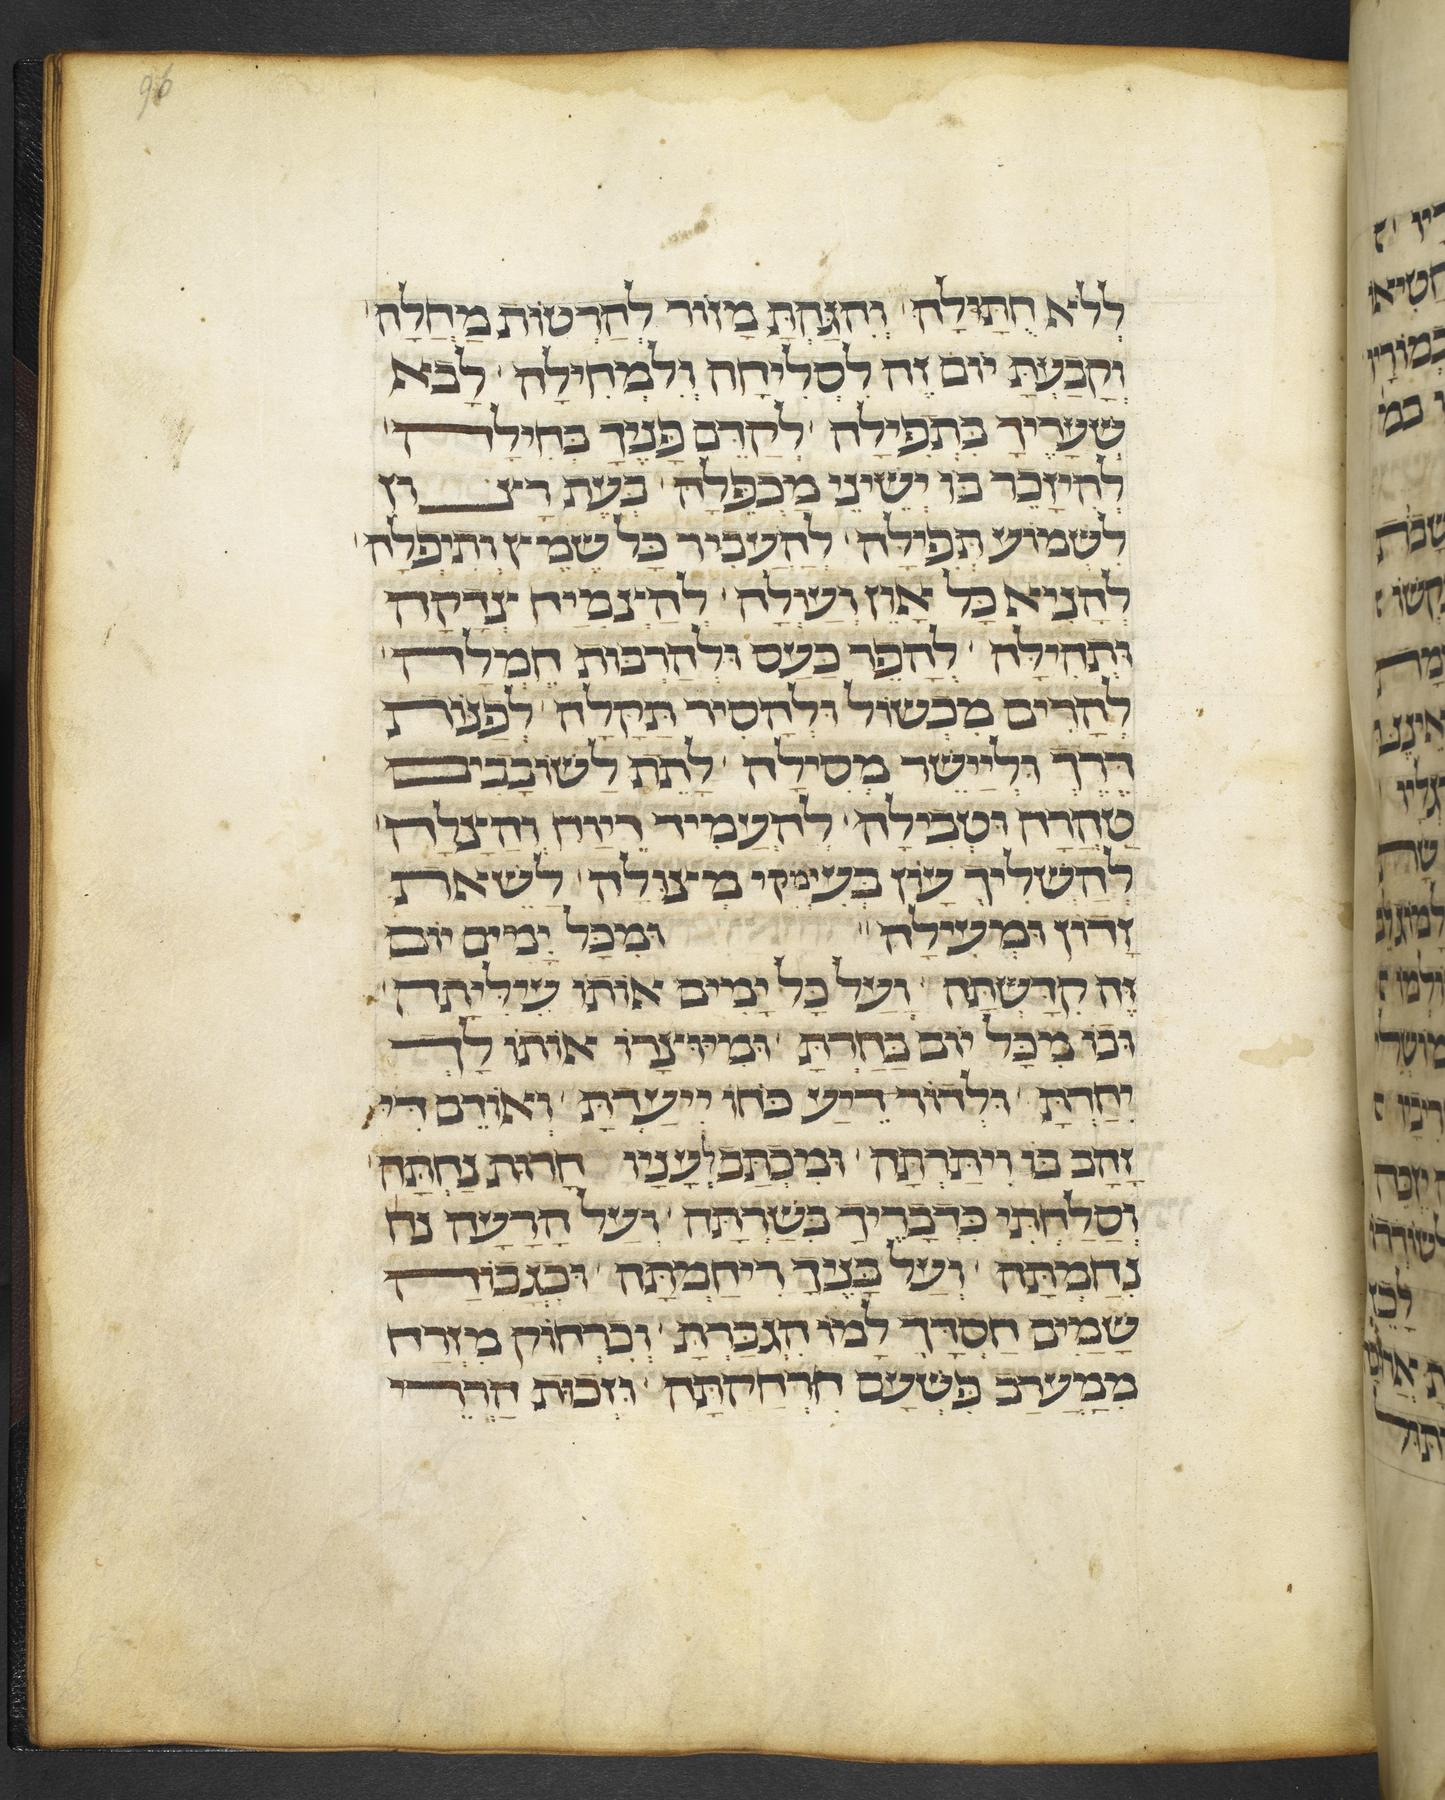 לְלֹא חֲתוּלָה׳ וְהִנַּחְתָּ מָזוֹר לְהַרְטוֹת מַחֲלָה׳
וְקָבַעְתָּ יוֹם זֶה לִסְלִיחָה וְלִמְחִילָה׳ לָבֹא
שְׁעָרֶיךָ בִּתְפִילָה׳ לְקַדֵּם פָּנֶיךָ בְּחִילָה׳
לְהִיזָּכֵר בּוֹ יְשֵׁינֵי מַכְפֵּלָה׳ בְּעֵת רָצוֹן
לִשְׁמוֹעַ תְּפִילָה׳ לְהַעֲבִיר כָּל שֶׁמֶץ וְתִיפְלָה׳
לְהָנִיא כָּל אָוֶן וְעַוְלָה׳ לְהַצְמִיחַ צְדָקָה
וּתְהִילָה׳ לְהָפֵר כַּעַס וּלְהַרְבּוֹת חֶמְלָה׳
לְהָרִים מִכְשׁוֹל וּלְהָסִיר תַּקָּלָה׳ לְפַנּוֹת
דֶּרֶךְ וּלְיַישֵּׁר מְסִילָה׳ לָתֵת לַשּׁוֹבָבִים
טַהֲרָה וּטְבִילָה׳ לְהַעֲמִיד רֵיוַח וְהַצָּלָה׳
לְהַשְׁלִיךְ עָוֹן בְּעִימְקֵי מְצוּלָה׳ לָשֵׂאת
זָדוֹן וּמְעִילָה׳׳ וּמִכָּל יָמִים יוֹם
זֶה קִדַּשְׁתָּה׳ וְעַל כָּל יָמִים אוֹתוֹ עִילִּיתָה׳
וּבוֹ מִכָּל יוֹם בָּחַרְתָּ׳ וּמִיּוֹצְרוֹ אוֹתוֹ לָךְ
יִחַדְתָּ׳ וּלְדוֹר דֵּיעַ כֹּחוֹ יִיעַדְתָּ׳ וְאוֹדֵם דִּי
זָהָב בּוֹ וִיתַּרְתָּה׳ וּמִכְתַּב לְעָנָיו חָרוּת נָחַתָּה׳
וְסָלַחְתִּי כִּדְבָרֶיךָ בִּשַּׂרְתָּה׳ וְעַל הָרָעָה נח
נִחַמְתָּה׳ וְעַל בָּנֶיךָ רִיחַמְתָּה׳ וּכְגָבוֹהַּ
שָׁמַיִם חַסְדְּךָ לָמוֹ הִגְבַּרְתָּ׳ וְכִרְחוֹק מִזְרָח
מִמַּעֲרָב פִּשְׁעָם הִרְחַקְתָּה׳ וּזְכוּת הַרְרֵי